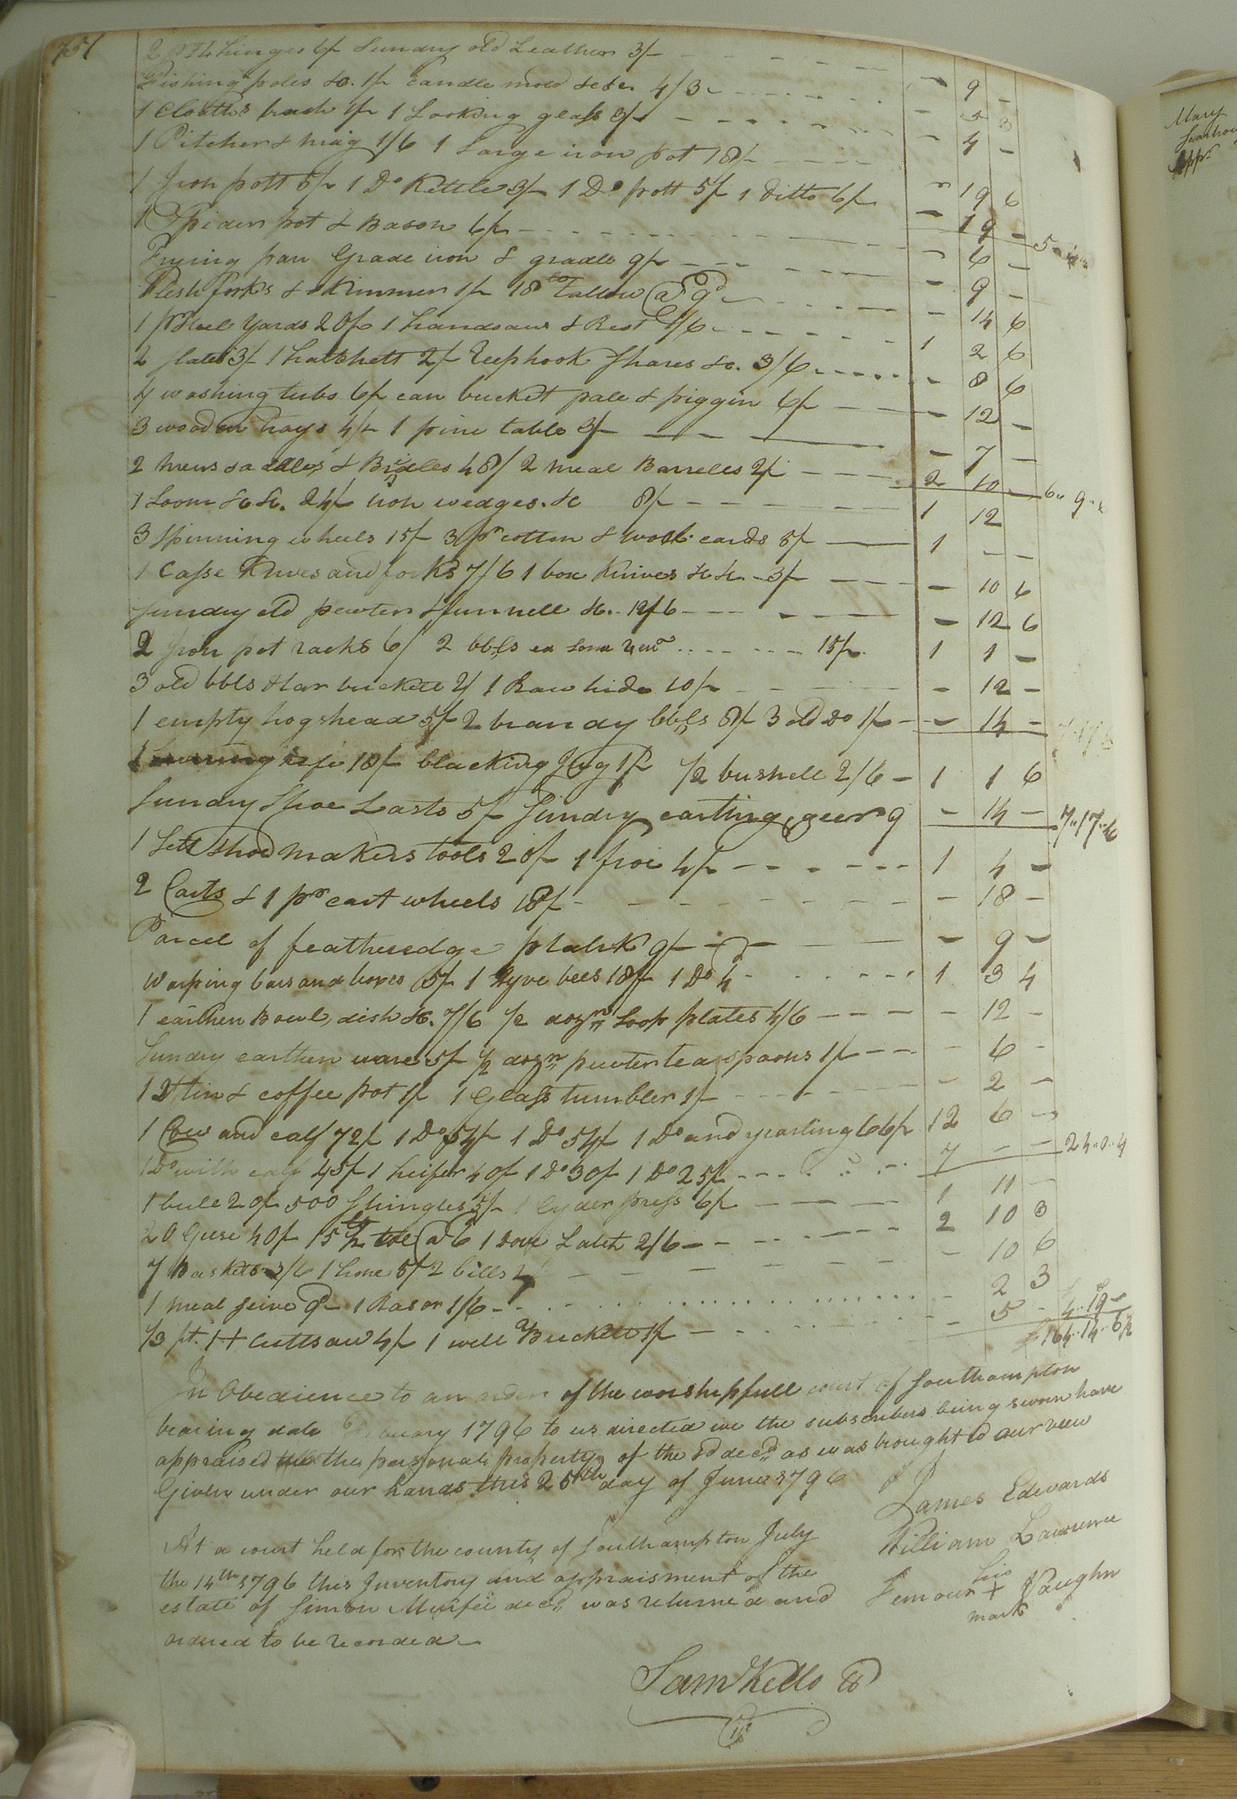 751
2 pr Hhinges 6/ Sundry old Leather 3/ - 9 -
Fishing poles &c. 1/ candle mold &c &c 4/3 - 5 3
1 Cloaths brush 1/ 1 Looking glass 3/ - 4 -
1 Pitcher & mug 1/6 1 Large iron pot 18/ - 19 6
1 Iron pott 5/ 1 Do Kettle 3/ 1 Do pott 5/ 1 ditto 6/ - 19 -
1 Spider pot & Bason 6/ - 6 -
Frying pan Grade iron & gradle 9/ - 9 -
Flesh forks & skimmer 1/ 18 lb Tallow @ 9d - 14 6
1 pr Steel Yards 20/ 1 handsaw & Rest 2/6 1 2 6
2 flates 3/ 1 hatchett 2/ Reephook Shares &c. 3/6 - 8 6
4 washing tubs 6/ can bucket pale & piggin 6/ - 12 -
3 wooden trays 4/ 1 pine table 3/ - 7 -
2 mens saddles & Bridles 48/ 2 meal Barreles 2/ 2 10 - 6..9..
1 Loom &c &c. 24/ iron wedges. &c 8/ 1 12
3 Spinning wheels 15/ 3 pr cotton & wool cards 5/ 1 - -
1 Casse Knives and forks 7/6 1 box Knives &c &c 3/ - 10 6
Sundry old pewter & funnell &c. 12/6 - 12 6
2 Iron pot racks 6/ 2 bbls 15/ 1 1 -
3 old bbls & tar buckett 2/ 1 Raw hide 10/ - 12 -
1 empty hogshead 5/ 2 brandy bbls 8/ 3 old Do 1/ - 14 -
1 18/ blacking Jug 1/ 1/2 bushell 2/6 1 1 6
Sundry Shoe Lasts 5/ Sundry carting geer 9 - 14 - 7..17..6
1 Sett shoemakers tools 20/ 1 froe 4/ 1 4 -
2 Carts & 1 pr cart wheels 18/ - 18 -
Parcel of featheredge plank 9/ - 9 -
Warping bars and boxes 5/ 1 Hyve bees 18/ 1 Do 4d 1 3 4
1 earthen Bowl, dish &c. 7/6 1/2 dozn Soop plates 4/6 - 12 -
Sundry earthen ware 5/ 1/2 dozn pewter tea spoons 1/ - 6 -
1 tin & coffee pot 1/ 1 Glass tumbler 1/ - 2 -
1 Cow and calf 72/ 1 Do 54/ 1 Do 54/ 1 Do and yearling 66/ 12 6 -
1 Do with calf 45/ 1 heifer 40/ 1 Do 30/ 1 Do 25/ 7 - - 24..0..4
1 bull 20/ 500 Shingles 5/ 1 Cyder press 6/ 1 11 -
20 Geese 40/ 15 1/2 lb @ 6 1 Dove Latch 2/6 2 10 3
7 Baskets 3/6 1 hone 5/ 2 bills 2/ - 10 6
1 meal seive 9 1 Rasor 1/6 2 3
1/3 pt. 1 + cuttsaw 4/ 1 well Buckett 1/ - 5 - 4..19
£164..14..6 1/2
In Obedience to an order of the worshipfull court of Southampton
bearing date February 1796 to us directed we the subscribers being sworn have
appraised the personal property of the sd decd as was brought to our view
Given under our hands this 25th day of June 1796
James Edwards
William Lawrence
his
Lemour + Vaughn
mark
At a court held for the county of Southampton July
the 14th 1796 this Inventory and appraisment of the
estate of Simon Murfee decd was returned and
ordered to be recorded
Saml Kello CC
Mary
Appr.